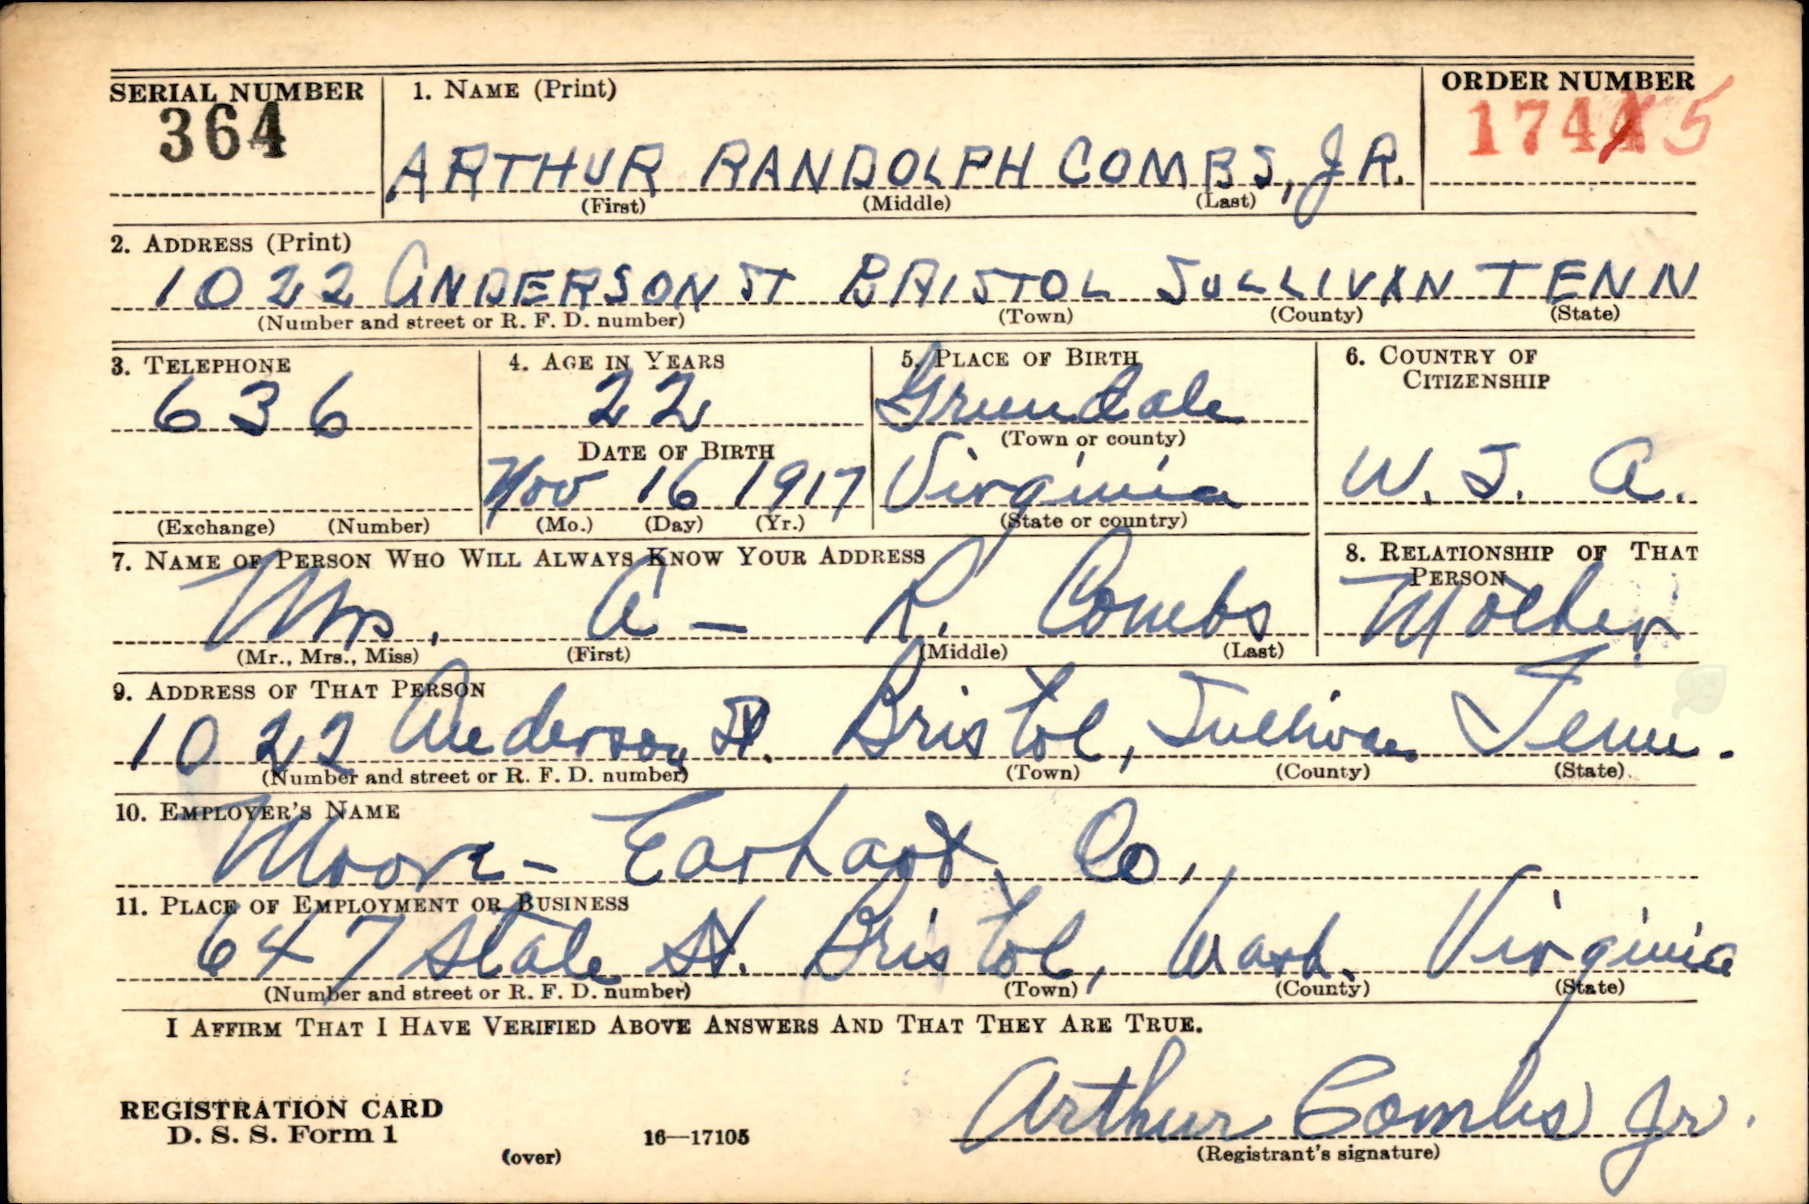 SERIAL NUMBER 1. NAME (Print) ORDER NUMBER
364 1744 5
ARTHUR RANDOLPH COMBS, JR.
(First) (Middle) (Last)
2. ADDRESS (Print)
1022 ANDERSON ST BRISTOL SULLIVAN TENN
(Number and street or R. F. D. number) (Town) (County) (State)
3. TELEPHONE 4. AGE IN YEARS 5. PLACE OF BIRTH 6. COUNTRY OF CITIZENSHIP
636 22 Greendale
(Town or county)
DATE OF BIRTH
Nov 16 1917 Virginia U. S. A.
(Exchange) (Number) (Mo.) (Day) (Yr.) (State or country)
7. NAME OF PERSON WHO WILL ALWAYS KNOW YOUR ADDRESS 8. RELATIONSHIP OF THAT PERSON
Mrs. A - R. Combs Mother
(Mr., Mrs., Miss) (First) (Middle) (Last)
9. ADDRESS OF THAT PERSON
1022 Anderson St. Bristol, Sullivan Tenn.
(Number and street or R. F. D. number) (Town) (County) (State)
10. EMPLOYER'S NAME
Moore - Earhart Co.
11. PLACE OF EMPLOYMENT OR BUSINESS
647 State St. Bristol, Wash. Virginia
(Number and street or R. F. D. number) (Town) (County) (State)
I AFFIRM THAT I HAVE VERIFIED ABOVE ANSWERS AND THAT THEY ARE TRUE.
Arthur Combs Jr.
REGISTRATION CARD
D. S. S. Form 1 (over) 16—17105 (Registrant's signature)